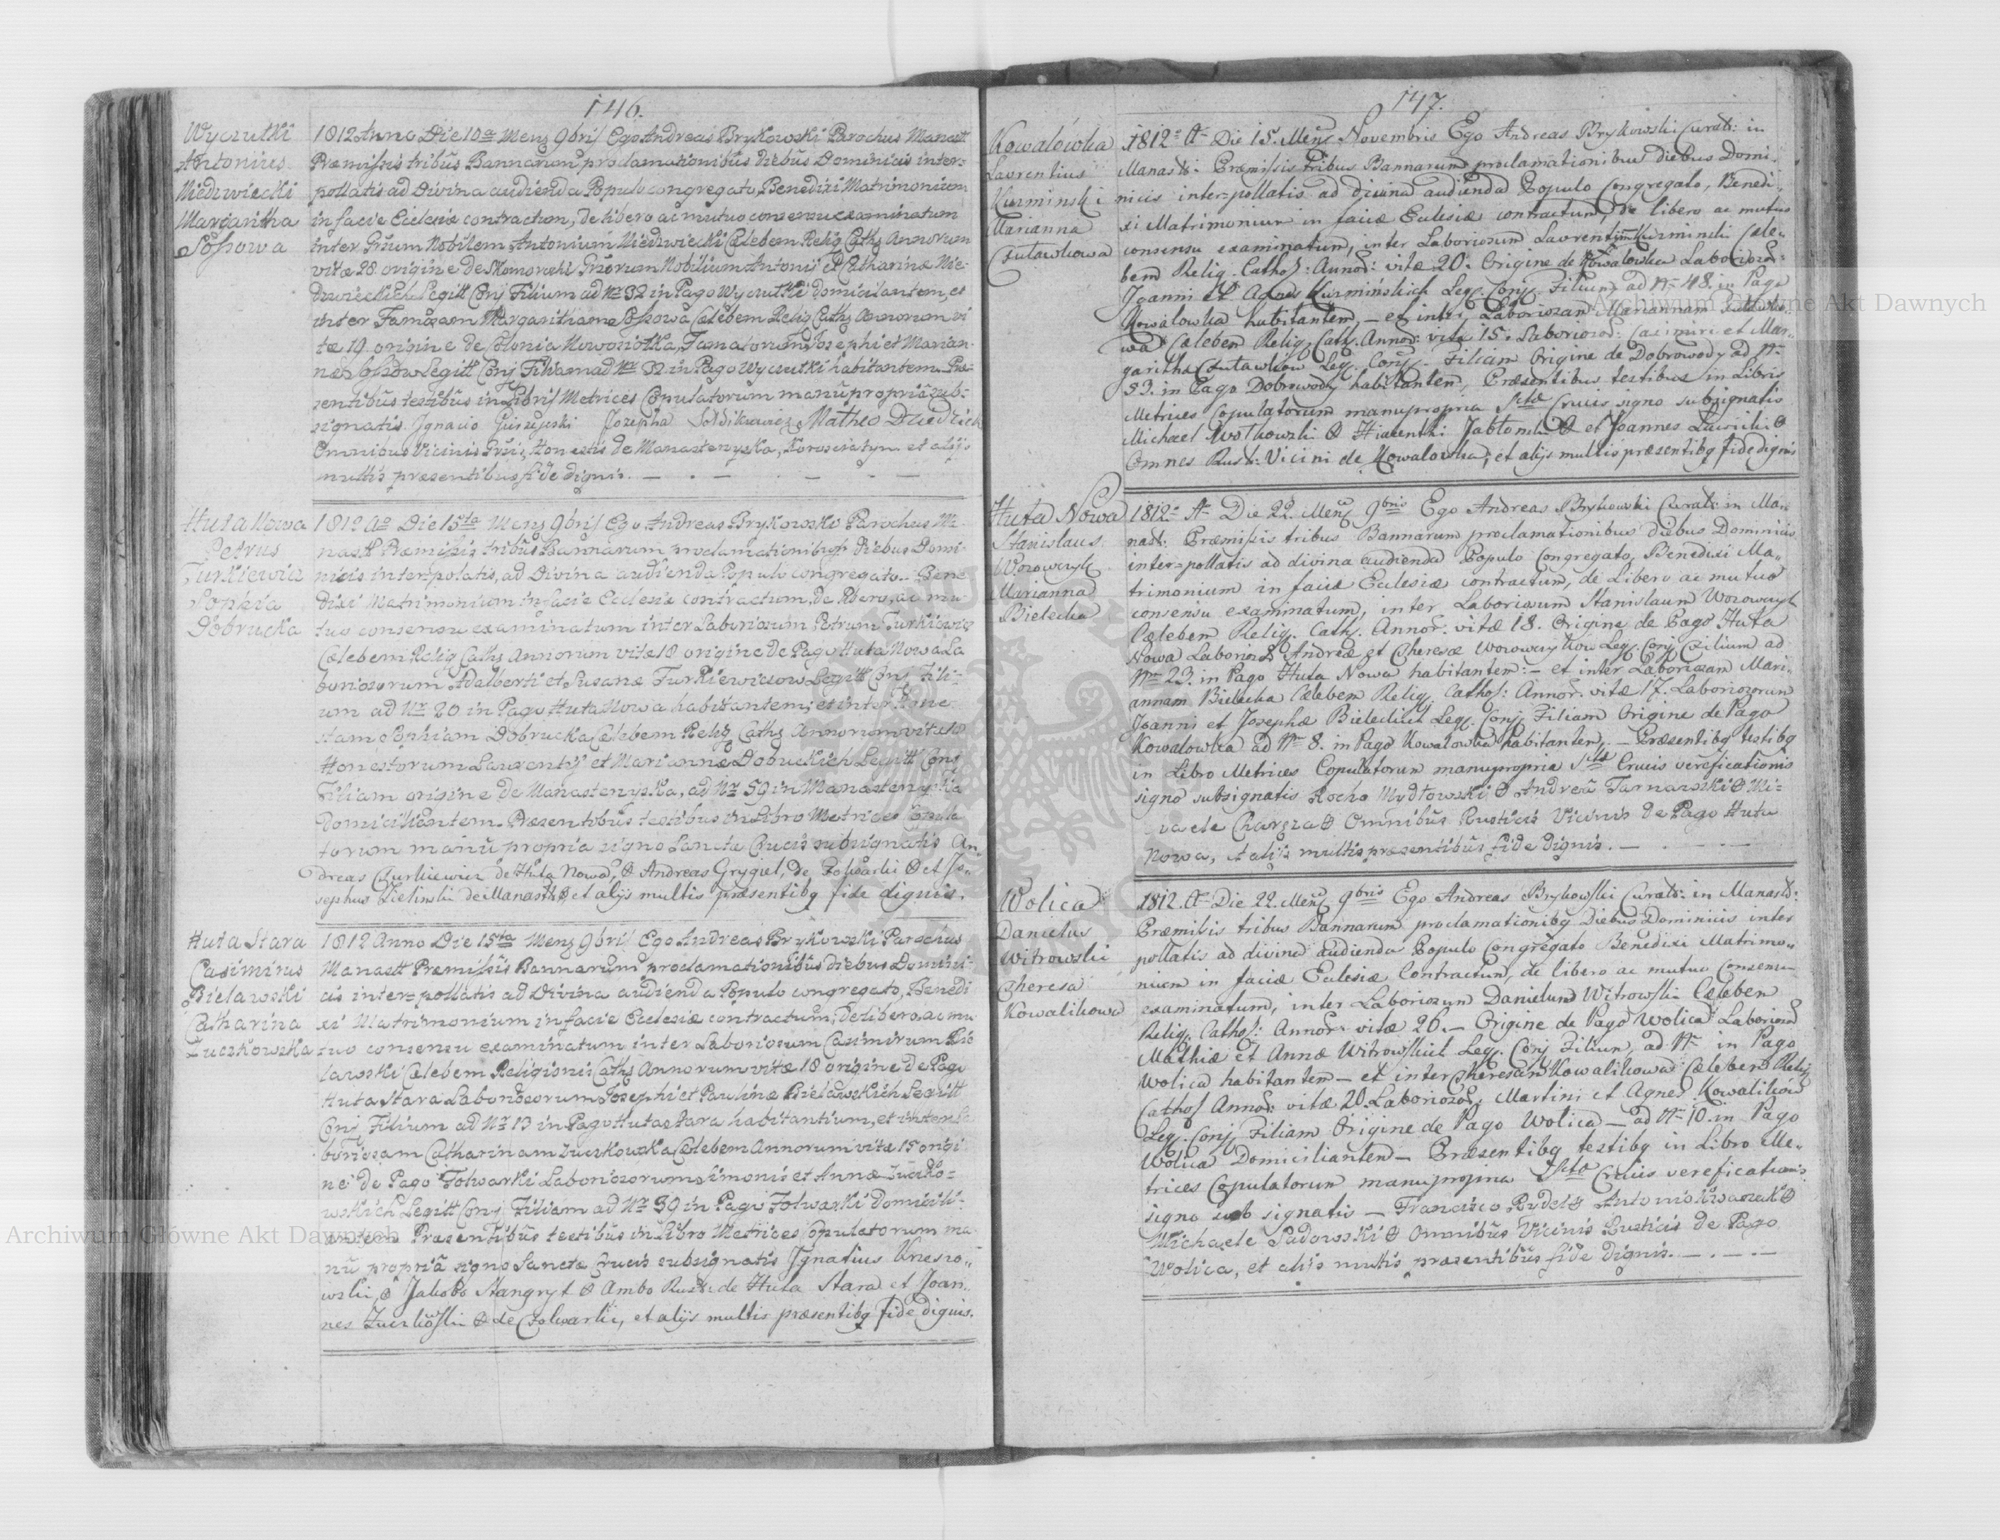 146.
Wyczutki
Antonius
Niedzwiecki
Margaritha
Sossowa
1812 Anno Die 10a Mens 9bris Ego Andreas Brykowski Parochus Manast
Præmissis tribus Bannarum proclamationibus diebus Dominicis inter-
pollatis ad Divina audienda Populo congregato, Benedixi Matrimonium
in facie Ecclesiæ contractum, de libero ac mutuo consensu examinatum
inter Nobilem Antonium Niedzwiecki Cælebem Relig Caths Annorum
vitæ 28 origine de Nobilium Antonii et Catharinæ Nie-
dzwieckich Legitt Conj Filium ad Nr 32 in Pago Wyczutki domicilantem, et
inter Famosam Margaritham Sossowa Cælebem Relig Caths Annorum vi
tæ 19 origine de Colonia Nowosiołka, Famatorum Josephi et Marian-
næ Legitt Conj Filiam ad Nr 32 in Pago Wyczutki habitantem Præ-
sentibus testibus in Libris Metrices Copulatorum manu propria sub-
signatis. Ignacio Josepha Matheo
Omnibus Vicinis Honestis de Manasterzyska, et alijs
multis præsentibus fide dignis. — . — . —
Huta Nowa
Petrus
Turkiewicz
Sophia
Dobrucka
1812 Ao Die 15ta Mens 9bris Ego Andreas Brykowski Parochus Ma-
nast Præmissis tribus Bannarum proclamationibus Diebus Domi-
nicis inter-polatis, ad Divina audienda Populo congregato. Bene
dixi Matrimonium in facie Ecclesiæ contractum, de libero, ac mu
tuo consensu examinatum inter Laboriosum Petrum Turkiewicz
Cælebem Relig Caths Annorum vitæ 18 origine de Pago Huta Nowa La
boriosorum Adalberti et Susanæ Turkiewiczow Legitt Conj Fili-
um ad Nr 20 in Pago Huta Nowa habitantem; et inter Hone
stam Sophiam Dobrucka Cælebem Relig Caths Annorum vitæ
Honestorum Laurentij et Mariannæ Dobruckich Legitt Conj
Filiam origine de Manasterzyska, ad Nr 59 in Manasterzyska
domicilientem. Præsentibus testibus in Libro Metrices Copula
torum manu propria signo Sanctæ Crucis subsignatis An-
dreas de Huta Nowa, et Andreas Grygiel, de Folwarki et Jo-
sephus Zielinski de Manast et alijs multis præsentibq fide dignis.
Huta Stara
Casimirus
Bielawski
Catharina
Zuczkowska
1812 Anno Die 15ta Mens 9bris Ego Andreas Brykowski Parochus
Manastt Præmissis Bannarum proclamationibus diebus Domini-
cis inter-pollatis ad Divina audienda Populo congregato, Benedi
xi Matrimonium in facie Ecclesiæ contractum, de libero, ac mu
tuo consensu examinatum inter Laboriosum Casimirum Bie
lawski Cælebem Religionis Caths Annorum vitæ 18 origine de Pago
Huta Stara Laboriosorum Josephi et Paulinæ Bielawskich Legitt
Conj Filium ad Nr 13 in Pago Huta Stara habitantium, et inter La
boriosam Catharinam Zuczkowska Cælebem Annorum vitæ 15 origi
ne de Pago Folwarki Laboriosorum Simonis et Annæ Zuczko-
wskich Legitt Conj Filiam ad Nr 39 in Pago Folwarki Domicili-
antem Præsentibus testibus in Libro Metrices Copulatorum ma-
nu propria signo Sanctæ Crucis subsignatis Ignatius
wski, et Jakobo Stangryt Ambo Rust: de Huta Stara et Joan-
nes de Folwarki, et alijs multis præsentibq fide dignis.
147.
Kowalówka
Laurentius
Kurminski
Marianna
Csutawkowa
1812o Ao Die 15. Mens Novembris Ego Andreas Brykowski Curat: in
Manast: Præmissis tribus Bannarum proclamationibus diebus Domi-
nicis inter-pollatis ad divina audienda Populo Congregato, Benedi-
xi Matrimonium in faciæ Eclesiæ contractum, de libero ac mutuo
consensu examinatum, inter Laboriosum Laurentium Kurminski Cæle-
bem Relig. Cathol: Annor: vitæ 20. Origine de Kowalowka Laborios:
Joanni et Agnes Kurmińskich Leg. Conj. Filium ad Nr 48. in Pago
Kowalowka habitantem — et inter Laboriosam Mariannam
wa Cæleben Relig. Cath. Annor: vitæ 15. Laborios: Casimiri et Mar-
garitha Csutawkow Leg. Conj. Filiam Origine de Dobrowody ad Nr
33. in Pago Dobrowody habitantem, Præsentibus testibus in Libris
Metrices Copulatorum manupropria Sctæ Crucis signo subsignatis
Michael et Hiacenthi et Joannes
Omnes Rust: Vicini de Kowalowka, et alijs multis præsentibq fide dignis
Huta Nowa
Stanislaus
Worowczyk
Marianna
Bielecka
1812o Ao Die 22 Mens 9bris Ego Andreas Brykowski Curat: in Ma-
nast: Præmissis tribus Bannarum proclamationibus diebus Dominicis
inter-pollatis ad divina audienda Populo Congregato, Benedixi Ma-
trimonium in faciæ Ecclesiæ contractum, de Libero ac mutuo
consensu examinatum, inter Laboriosum Stanislaum Worowczyk
Cæleben Relig. Cath. Annor. vitæ 18. Origine de Pago Huta
Nowa Laborios Andreæ et Theresæ Worowczykow Leg. Conj Filium ad
Nrm 23. in Pago Huta Nowa habitantem: — et inter Laboriosam Mari-
annam Bielecka Cæleben Relig Cathol: Annor. vitæ 17. Laboriosorum
Joanni et Josephæ Bieleckich Leg. Conj Filiam Origine de Pago
Kowalowka ad Nr 8. in Pago Kowalowka habitantem, — Præsentibq testibq
in Libro Metrices Copulatorum manupropria Sctæ Crucis verefications
signo subsignatis Rocho Mydłowski Andrea Tarnawski Mi-
chaele Omnibus Rusticis Vicinis de Pago Huta
Nowa, et alijs multis præsentibus fide dignis. — . — . —
Wolica
Danielus
Witrowski
Theresa
Kowalikowa
1812. Ao Die 22. Mens 9bris Ego Andreas Brykowski Curat: in Manast:
Præmissis tribus Bannarum proclamationibq Diebus Dominicis inter
pollatis ad divina audienda Populo Congregato Benedixi Matrimo-
nium in faciæ Eclesiæ Contractum, de libero ac mutuo Consensu
examinatum, inter Laboriosum Danielum Witrowski Cæleben
Relig. Cathol: Annor: vitæ 26. — Origine de Pago Wolica Laborios
Mathiæ et Annæ Witrowskich Leg. Conj Filium, ad Nr in Pago
Wolica habitantem — et inter Theresam Kowalikowa Cæleben Relig
Cathol Annor: vitæ 20. Laborios, Martini et Agnes Kowalikow
Leg. Conj Filiam Origine de Pago Wolica — ad Nr 10. in Pago
Wolica Domicilianten — Præsentibq testibq in Libro Me-
trices Copulatorum manupropria Sctæ Crucis verefications
signo sub signatis — Francisco Antonio
Michaele Sadowski Omnibus Vicinis Rusticis de Pago
Wolica, et alijs multis præsentibus fide dignis. — . — . —
Archiwum Główne Akt Dawnych
Archiwum Główne Akt Dawnych